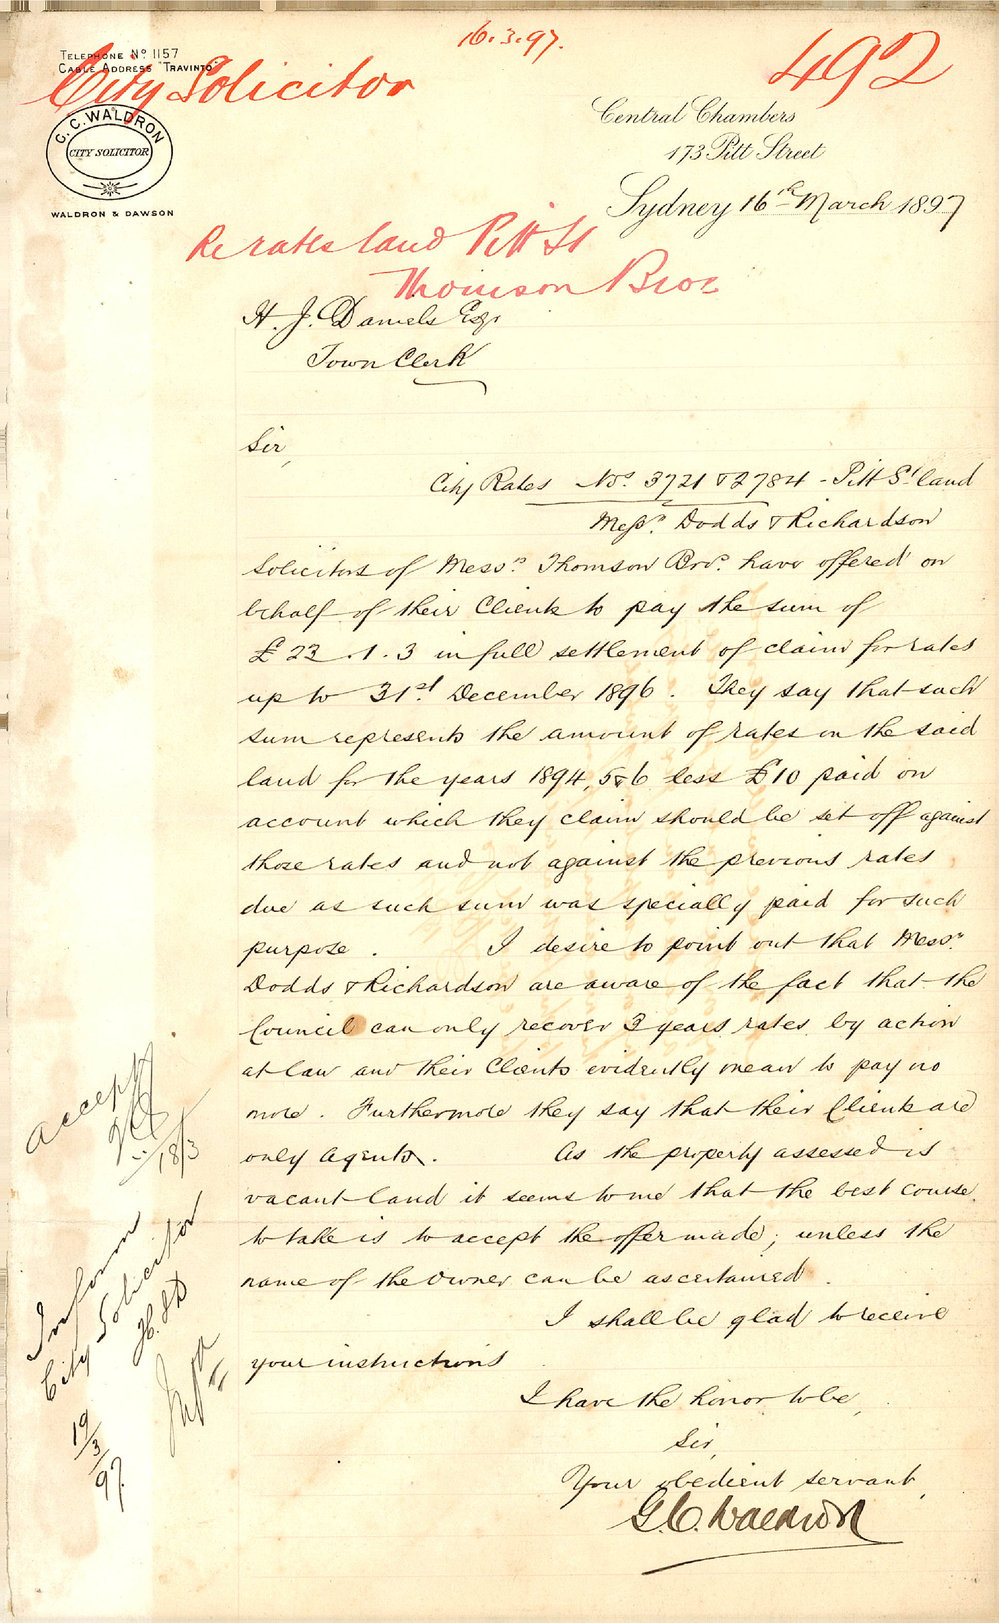 16.3.97.
492
TELEPHONE Nº 1157
CABLE ADDRESS "TRAVINTO"
City Solicitor
C. C. WALDRON
CITY SOLICITOR
WALDRON & DAWSON
Central Chambers
173 Pitt Street
Sydney 16th March 1897
Re rates land Pitt St
Thomson Bros
H. J. Daniels Esqr
Town Clerk
Sir,
City Rates Nos. 3721 & 2784 - Pitt St land
Messrs. Dodds & Richardson
Solicitors of Messrs. Thomson Bros. have offered on
behalf of their Clients to pay the sum of
£23.1.3 in full settlement of claim for rates
up to 31st December 1896. They say that such
sum represents the amount of rates on the said
land for the years 1894, 5 & 6 less £10 paid on
account which they claim should be set off against
those rates and not against the previous rates
due as such sum was specially paid for such
purpose. I desire to point out that Messrs.
Dodds & Richardson are aware of the fact that the
Council can only recover 3 years rates by action
at law and their Clients evidently mean to pay no
more. Furthermore they say that their Clients are
only Agents. As the property assessed is
vacant land it seems to me that the best course
to take is to accept the offer made; unless the
name of the owner can be ascertained.
I shall be glad to receive
your instructions
I have the honor to be,
Sir,
Your obedient servant,
G. C. Waldron
accept
18/3
Inform
City Solicitor
H.J.D
19/3/97.